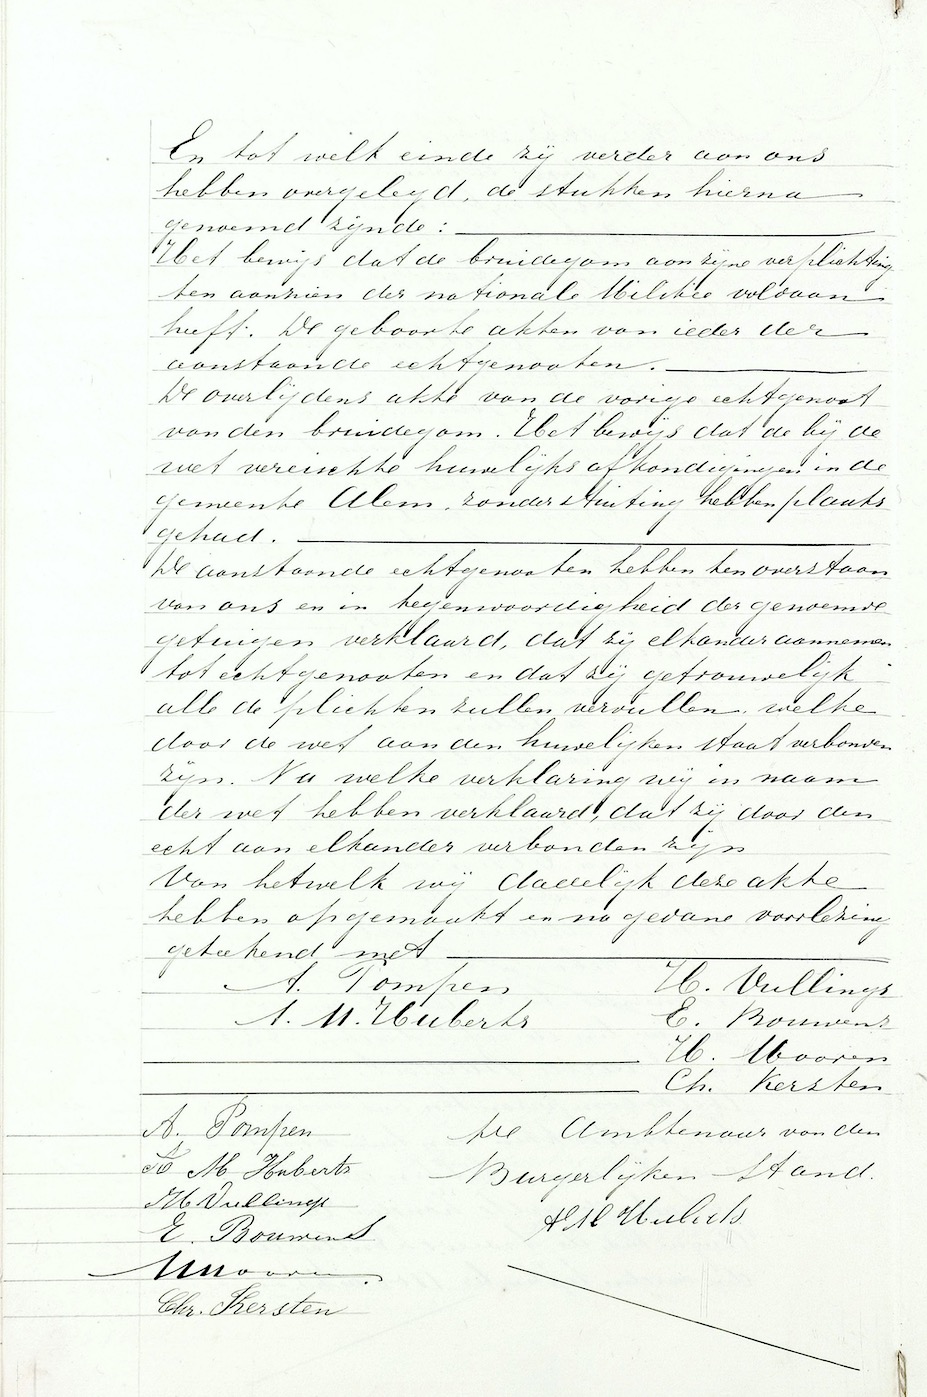 En tot welk einde zij verder aan ons
hebben overgelegd, de stukken hierna
genoemd zijnde:
Het bewijs dat de bruidegom aan zijne verplichting
ten aanzien der nationale Militie voldaan
heeft. De geboorte akten van ieder der
aanstaande echtgenooten.
De overlijdens akte van de vorige echtgenoot
van den bruidegom. Het bewijs dat de bij de
wet vereischte huwelijks afkondigingen in de
gemeente Alem, zonder stuiting hebben plaats
gehad.
De aanstaande echtgenooten hebben ten overstaan
van ons en in tegenwoordigheid der genoemde
getuigen verklaard, dat zij elkander aannemen
tot echtgenooten en dat zij getrouwelijk
alle de plichten zullen vervullen, welke
door de wet aan den huwelijken staat verbonden
zijn. Na welke verklaring wij in naam
der wet hebben verklaard, dat zij door den
echt aan elkander verbonden zijn
Van hetwelk wij dadelijk deze akte
hebben opgemaakt en na gedane voorlezing
geteekend met
A. Pompen H. Vullings
A. M. Huberts E. Bouwens
H. Mooren
Ch. Kersten
A. Pompen De Ambtenaar van den
A M Huberts Burgerlijken Stand.
H Vullings
E. Bouwens
Mooren
Chr. Kersten